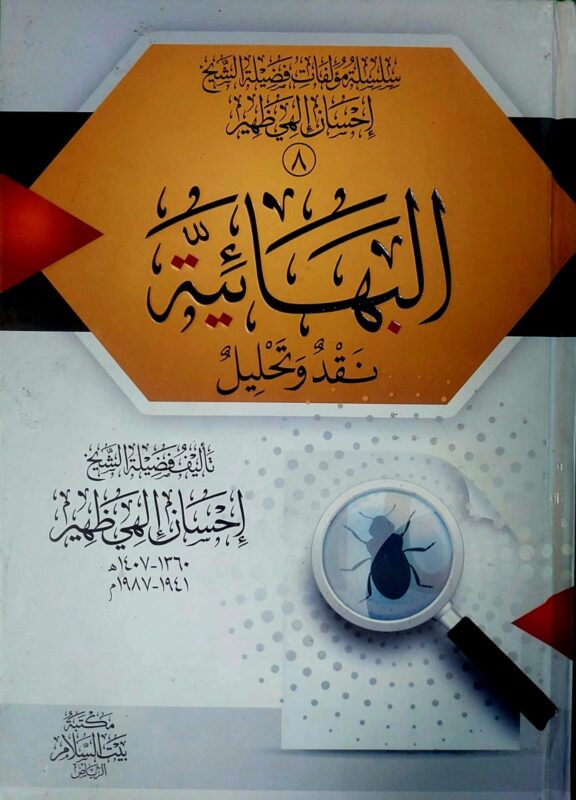 سلسلة مؤلفات فضيلة الشيخ
إحسان إلهي ظهير
٨
البهائية
نقد وتحليل
تأليف فضيلة الشيخ
إحسان إلهي ظهير
١٣٦٠-١٤٠٧هـ
١٩٤١-١٩٨٧م
مكتبة
بيت السلام
الرياض